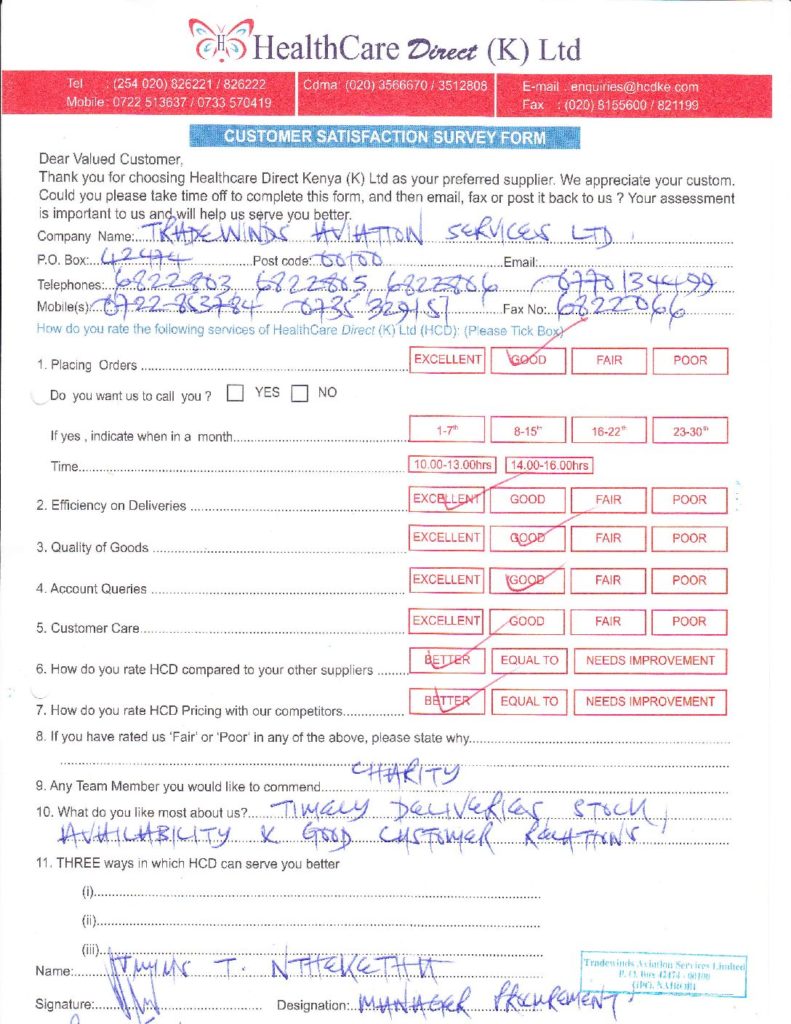 H
HealthCare Direct (K) Ltd
Tel : (254 020) 826221 / 826222
Mobile: 0722 513637 / 0733 570419
Cdma: (020) 3566670 / 3512808
E-mail : enquiries@hcdke.com
Fax : (020) 8155600 / 821199
CUSTOMER SATISFACTION SURVEY FORM
Dear Valued Customer,
Thank you for choosing Healthcare Direct Kenya (K) Ltd as your preferred supplier. We appreciate your custom.
Could you please take time off to complete this form, and then email, fax or post it back to us ? Your assessment
is important to us and will help us serve you better.
Company Name: TRADEWINDS AVIATION SERVICES LTD
P.O. Box: 42474 Post code: 00100 Email:
Telephones: 6822803 6822805, 6822806 0770134499
Mobile(s): 0722 853784 0735 329157 Fax No: 6822066
How do you rate the following services of HealthCare Direct (K) Ltd (HCD): (Please Tick Box)
1. Placing Orders EXCELLENT GOOD FAIR POOR
Do you want us to call you ? YES NO
If yes , indicate when in a month 1-7th 8-15th 16-22th 23-30th
Time 10.00-13.00hrs 14.00-16.00hrs
2. Efficiency on Deliveries EXCELLENT GOOD FAIR POOR
3. Quality of Goods EXCELLENT GOOD FAIR POOR
4. Account Queries EXCELLENT GOOD FAIR POOR
5. Customer Care EXCELLENT GOOD FAIR POOR
6. How do you rate HCD compared to your other suppliers BETTER EQUAL TO NEEDS IMPROVEMENT
7. How do you rate HCD Pricing with our competitors BETTER EQUAL TO NEEDS IMPROVEMENT
8. If you have rated us 'Fair' or 'Poor' in any of the above, please state why
9. Any Team Member you would like to commend CHARITY
10. What do you like most about us? TIMELY DELIVERIES, STOCK
AVAILABILITY & GOOD CUSTOMER RELATIONS
11. THREE ways in which HCD can serve you better
(i)
(ii)
(iii)
Name: T. NTHEKETHA
Signature: Designation: MANAGER PROCUREMENT
Tradewinds Aviation Services Limited
P. O. Box 42474 - 00100
GPO, NAIROBI